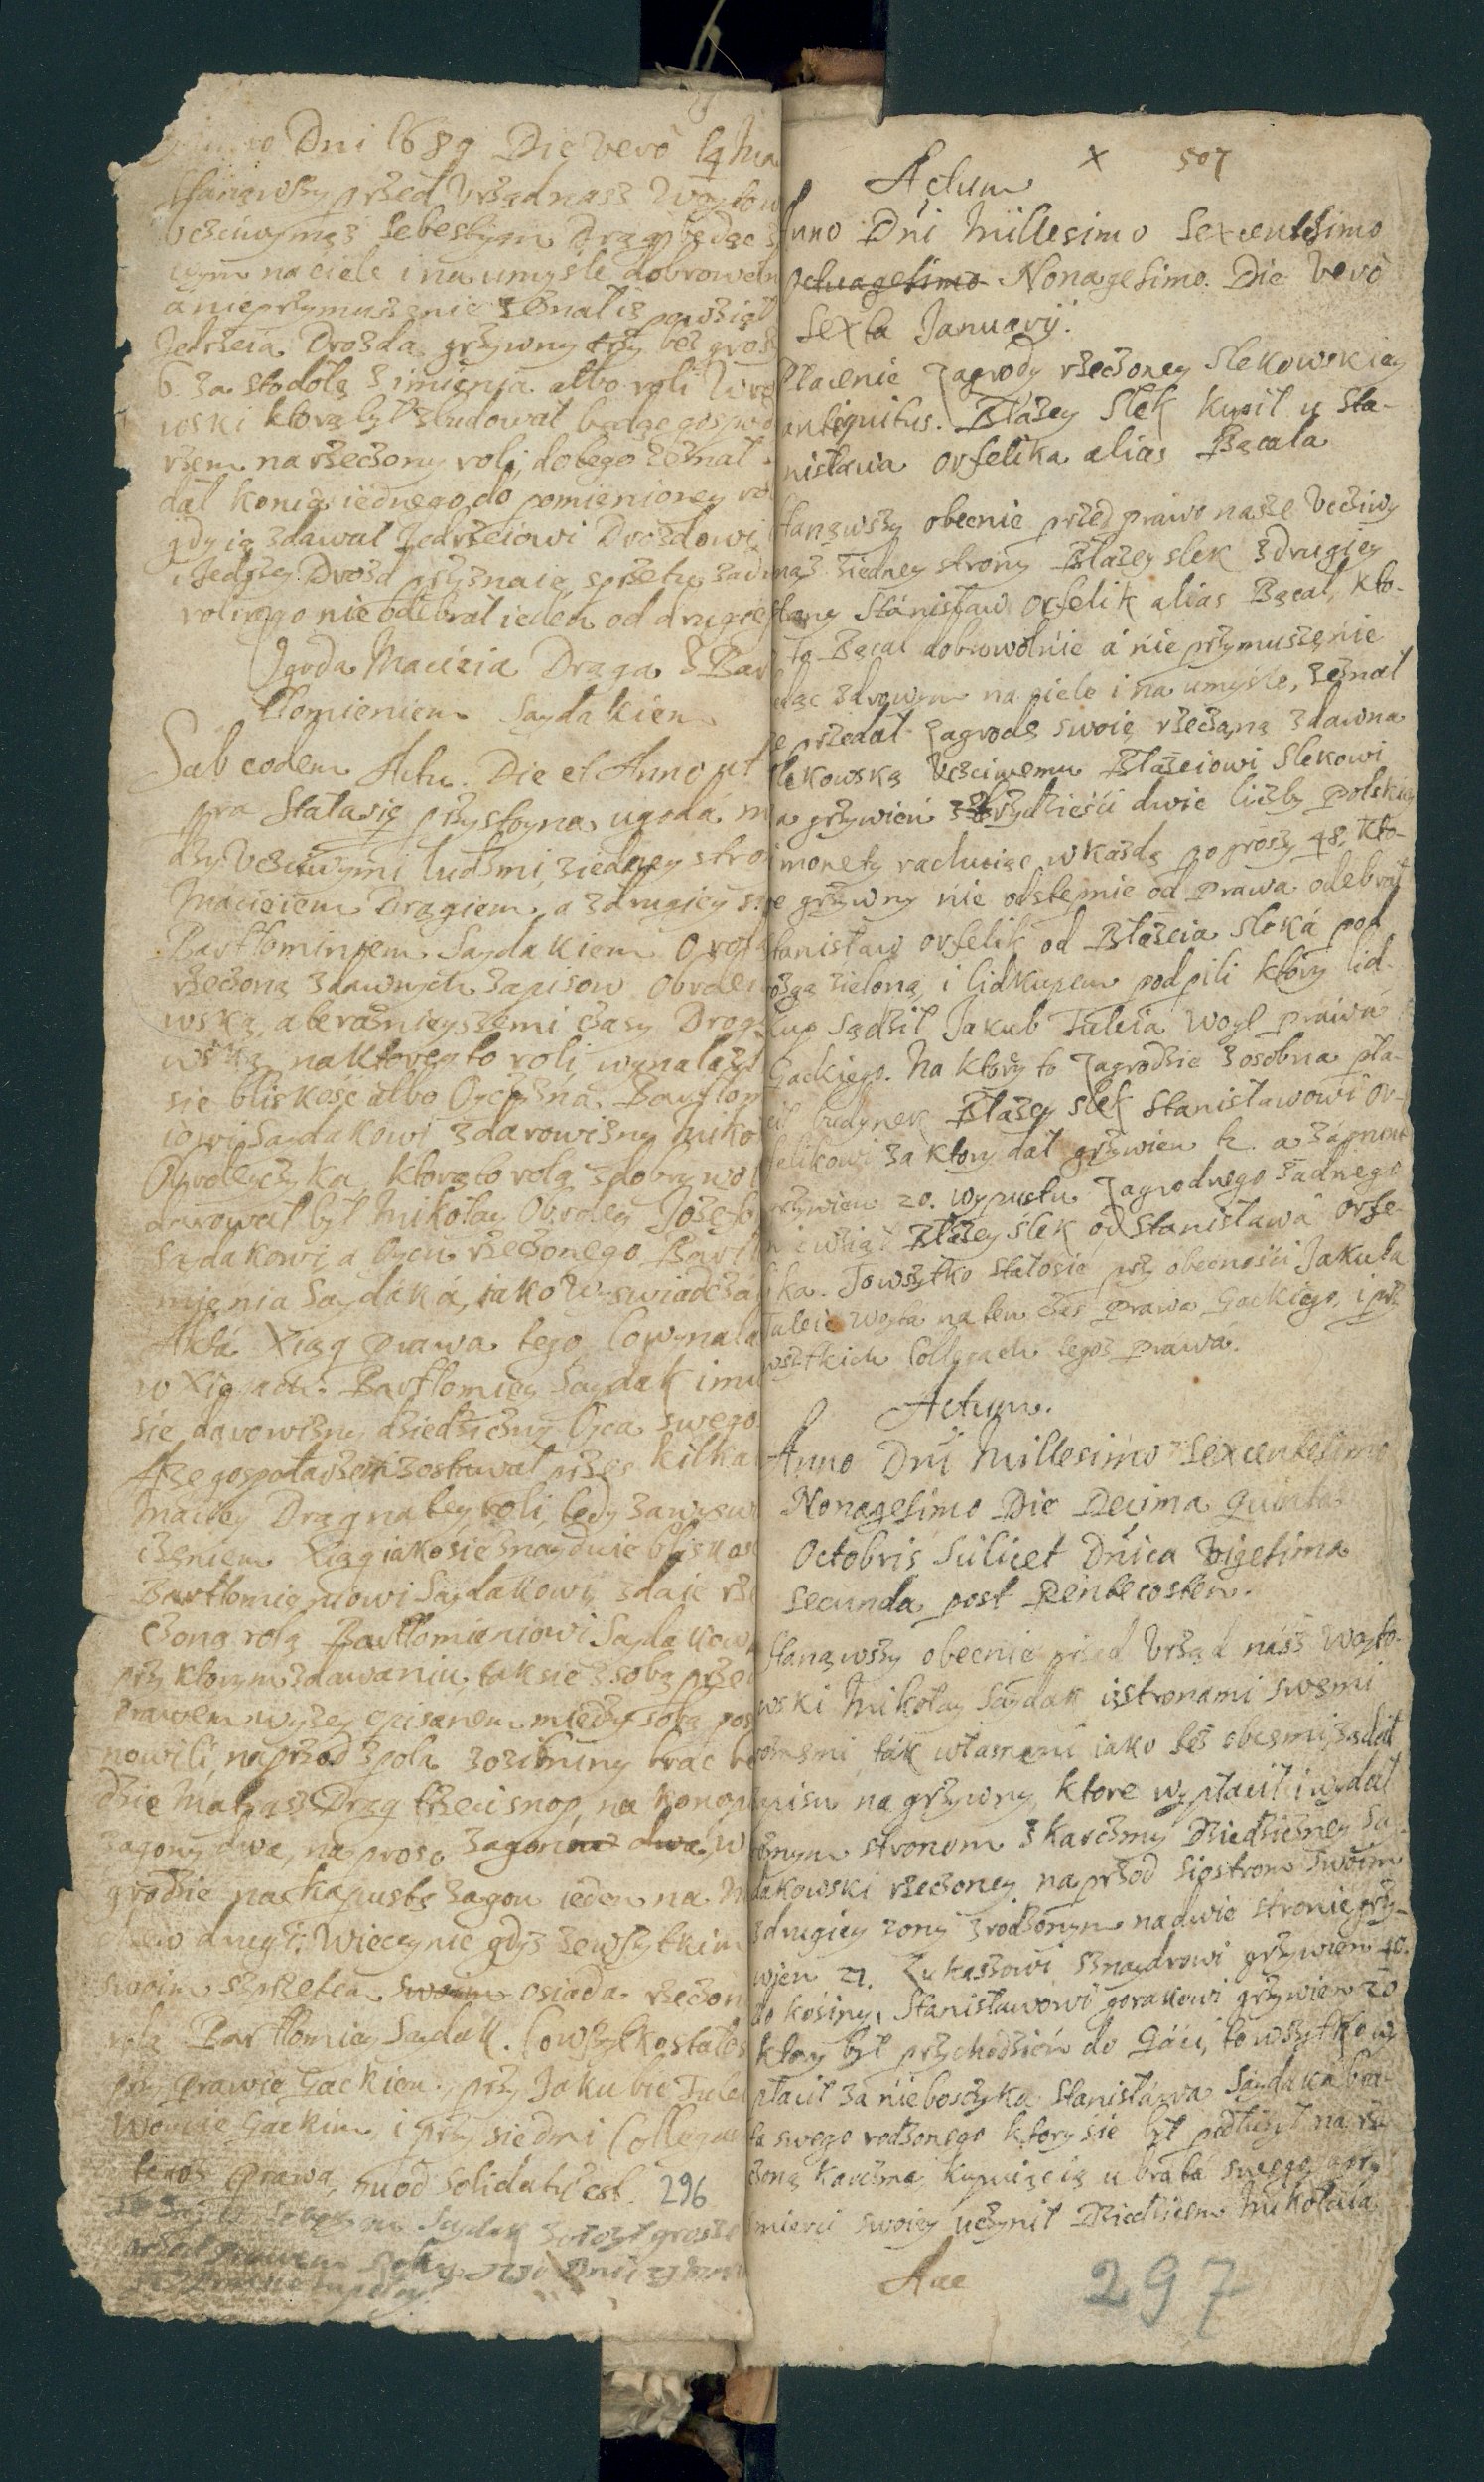 Dni 1689 Die vero 14 Ma
Stanąwszy przed Vrząd nasz Woyto
Vcżciwy mąż Sebestyan Drąg będąc z
wym na ciele i na umyśle dobrowoln
a nie przymuszenie zeznał iż po wziął
Jedrzeia Drozda grzywny trzy bez grosz
6. za stodołę z imienia albo roli Wro
wski ktorą był zbudował będąc gospod
rzem na rzeczony roli, do tego zeznał
dał konia iednego do pomienioney ro
gdy ią zdawał Jedrzeiowi Drozdowi
i Jedrzey Drozd przyznaie, sprzętu żad
rolnego nie odebrał ieden od drugie
Vgoda Macieia Drąga z Bar
tłomieniem Saydakiem
Sub eodem Actu. Die et Anno ut
pra Stała się przystoyna ugoda m
dzy Vcżciwymi ludzmi, ziedney stro
Macieiem Drągiem, a zdrugiey s
Bartłomieiem Saydakiem O rolą
rzeczoną zdawnych zapisow Obrole
wską, a teraznieyszemi czasy Drog
wską, na ktorey to roli wynalazł
sie bliskość albo Oyczyzna Bartłom
iowi Saydakowi zdarowizny Miko
Obroleyczyka, ktorą to rolą zdobry wol
darował był Mikołay Obroley Jozefo
Saydakowi, a Oycu rzeczonego Bartło
mienia Saydaka, iako wyswiadcza
Akta Xiąg prawa tego, Co wynala
w Xięgach. Bartłomiey Saydak imu
sie darowizny dziedziczny Oyca swego
A ze gospodarzem zostawał przez kilka
Maciey Drąg na tey roli, tedy za wyswi
czeniem Xiąg iako sie znayduie bliskos
Bartłomieniowi Saydakowi zdaie rze
czoną rolą Bartłomieniowi Saydakow
przy ktorym zdawaniu tak sie z sobą przed
Prawem wyzey opisanem między sobą pos
nowili, naprzod z pola z oziminy brac bę
dzie Matyasz Drąg trzeci snop, na konop
zagony dwa, na proso zagon dwa, w
grodzie na kapustę zagon ieden na M
chew drugi: Wiecey nie gdyż ze wszytkim
swoim szprzętem swoim osiada rzeczon
rolą Bartłomiey Saydak. Co wszytko stałos
przy prawie Gackim, przy Jakubie Tulei
Woycie Gackim, i przy siedmi Collegac
tegoż prawa, quod solidatũ est. 296
Saydak złozył grosze
przed prawem

X 507
Actum
Anno Dni Millesimo Sexcentesimo
octuagesimo Nonagesimo. Die Vero
Sexta Januarij.
Płacenie Zagrody rzeczoney Slekowskiey
antiquitus. Błażey Slek kupił u Sta-
nisława Orfelika alias Bącala
Stanąwszy obecnie przed prawo nasze Vcżciwy
mąż ziedney strony Błażey Slek zdrugiey
strony Stanisław Orfelik alias Bącal, kto-
ry to Bącal dobrowolnie a nie przymuszenie
będąc zdrowym na ciele i na umyśle, zeznał
że przedał Zagrodę swoię rzeczoną zdawna
Slekowską Vcżciwemu Błażeiowi Slekowi
za grzywien trzydzieści dwie liczby Polskiey
monety rachuiąc w każdą po groszy 48, Kto-
re grzywny nie odstępnie od prawa odebrał
Stanisław Orfelik od Błażeia Sleka pod
rożgą zieloną, i lidkupem podpili ktory lid-
kup sądził Jakub Tuleia Woyt prawa
Gackiego. Na ktory to Zagrodzie zosobna pła-
cił budynek Błażey Slek Stanisławowi Or-
felikowi za ktory dał grzywien 12. a zá grunt
grzywien 20. wypustu Zagrodnego żadnego
nie wziął Błażey Slek od Stanisława Orfe-
lika. To wszytko stało sie przy obecności Jakuba
Tuleie Woyta na ten czas Prawa Gackiego, i przy
wszytkich Collegach tegoż prawa.
Actum.
Anno Dni Millesimo Sexcentesimo
Nonagesimo Die Decima Quinta
Octobris Scilicet Dnica Vigesima
Secunda post Pentecosten.
Stanąwszy obecnie przed Vrząd nász Woyto-
wski Mikołay Saydak istronami swemi
roznemi, ták własnemi iako też obcemi żądał
zapisu na grzywny, ktore wypłacił i wydał
roznym stronom z karczmy Dziedziczney Sa-
dakowski rzeczoney, na przod siostrom swoim
zdrugiey zony zrodzonym na dwie stronie grzy-
wien 21. Łukaszowi Sznaydrowi grzywien 40.
do Kosiny, Stanisławowi Gorakowi grzywien 20
ktory był przychodzień do Gáci, to wszytko wy-
płacił za nieboszczyka Stanisława Saydaka bra-
ta swego rodzonego ktory sie był podłużył na rze-
czoną Karczmę, kupuiąc ią u brata swego, przy
śmierci swoiey uczynił Dziedzicem Mikołaia
Aae
297